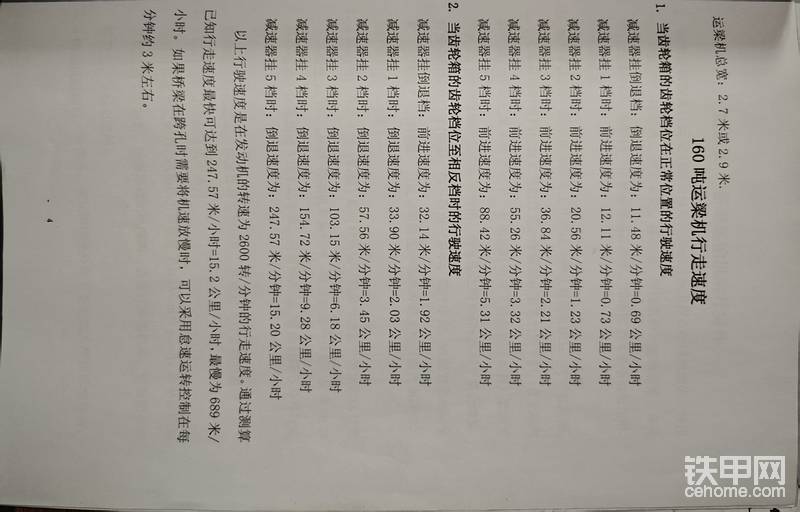 运梁机总宽：2.7 米或 2.9 米.
160 吨运梁机行走速度
1. 当齿轮箱的齿轮档位在正常位置的行驶速度
减速器挂倒退档：倒退速度为：11.48 米/分钟=0.69 公里/小时
减速器挂 1 档时：前进速度为：12.11 米/分钟=0.73 公里/小时
减速器挂 2 档时：前进速度为：20.56 米/分钟=1.23 公里/小时
减速器挂 3 档时：前进速度为：36.84 米/分钟=2.21 公里/小时
减速器挂 4 档时：前进速度为：55.26 米/分钟=3.32 公里/小时
减速器挂 5 档时：前进速度为：88.42 米/分钟=5.31 公里/小时
2. 当齿轮箱的齿轮档位至相反档时的行驶速度
减速器挂倒退档：前进速度为：32.14 米/分钟=1.92 公里/小时
减速器挂 1 档时：倒退速度为：33.90 米/分钟=2.03 公里/小时
减速器挂 2 档时：倒退速度为：57.56 米/分钟=3.45 公里/小时
减速器挂 3 档时：倒退速度为：103.15 米/分钟=6.18 公里/小时
减速器挂 4 档时：倒退速度为：154.72 米/分钟=9.28 公里/小时
减速器挂 5 档时：倒退速度为：247.57 米/分钟=15.20 公里/小时
以上行驶速度是在发动机的转速为 2600 转/分钟的行走速度。通过测算
已知行走速度最快可达到 247.57 米/小时=15.2 公里/小时,最慢为 689 米/
小时。如果桥梁在跨孔时需要将机速放慢时，可以采用怠速运转控制在每
分钟约 3 米左右。
4
铁甲网
cehome.com